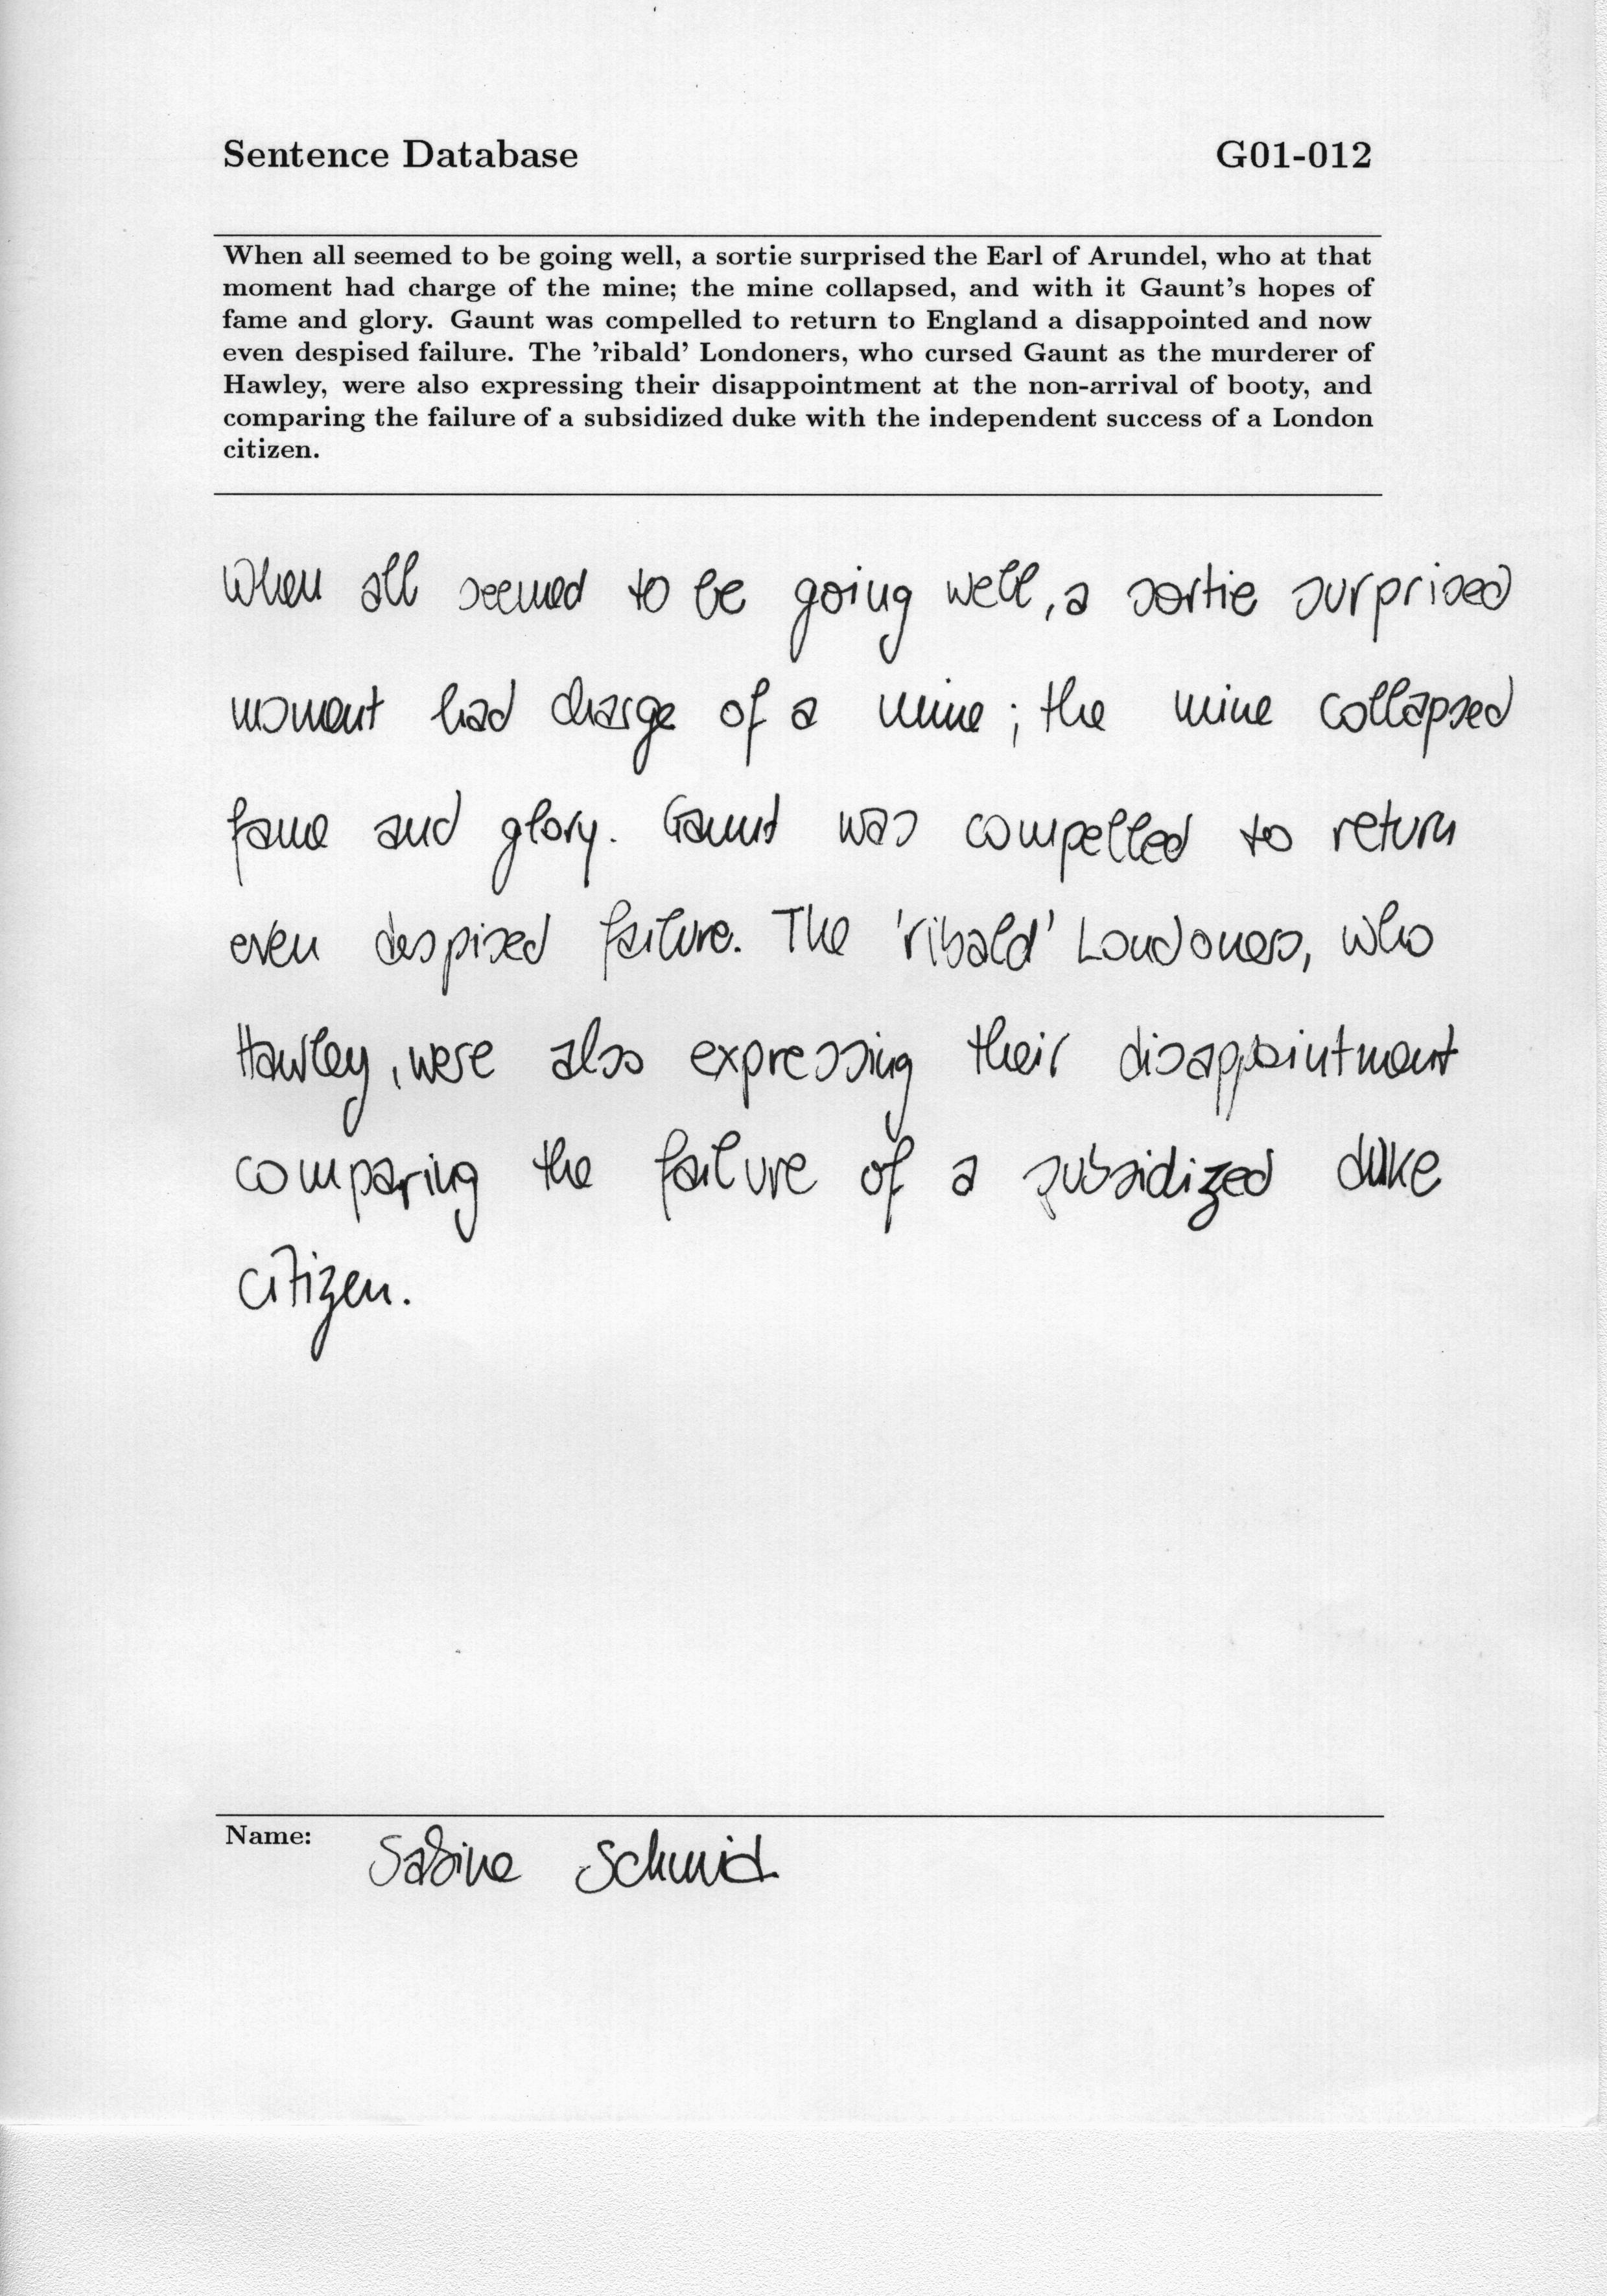 Sentence Database G01-012
When all seemed to be going well, a sortie surprised the Earl of Arundel, who at that
moment had charge of the mine; the mine collapsed, and with it Gaunt's hopes of
fame and glory. Gaunt was compelled to return to England a disappointed and now
even despised failure. The 'ribald' Londoners, who cursed Gaunt as the murderer of
Hawley, were also expressing their disappointment at the non-arrival of booty, and
comparing the failure of a subsidized duke with the independent success of a London
citizen.
When all seemed to be going well, a sortie surprised
moment had charge of a mine; the mine collapsed
fame and glory. Gaunt was compelled to return
even despised failure. The 'ribald' Londoners, who
Hawley, were also expressing their disappointment
comparing the failure of a subsidized duke
citizen.
Name: Sabine Schmid